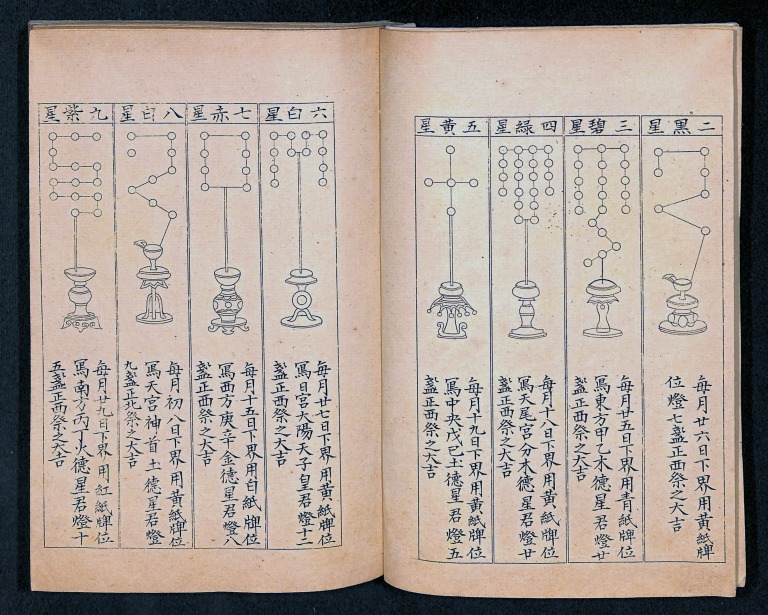 二黑星
每月廿六日下界用黃紙牌
位燈七盞正西祭之大吉
三碧星
每月廿五日下界用青紙牌位
寫東方甲乙木德星君燈廿
盞正西祭之大吉
四綠星
每月十八日下界用黃紙牌位
寫天尾宮分木德星君燈廿
盞正西祭之大吉
五黃星
每月十九日下界用黃紙牌位
寫中央戊己土德星君燈五
盞正西祭之大吉
六白星
每月廿七日下界用黃紙牌位
寫日宮太陽天子皇君燈十二
盞正西祭之大吉
七赤星
每月十五日下界用白紙牌位
寫西方庚辛金德星君燈八
盞正西祭之大吉
八白星
每月初八日下界用黃紙牌位
寫天宮神首土德星君燈
九盞正北祭之大吉
九紫星
每月廿九日下界用紅紙牌位
寫南方丙丁火德星君燈十
五盞正西祭之大吉